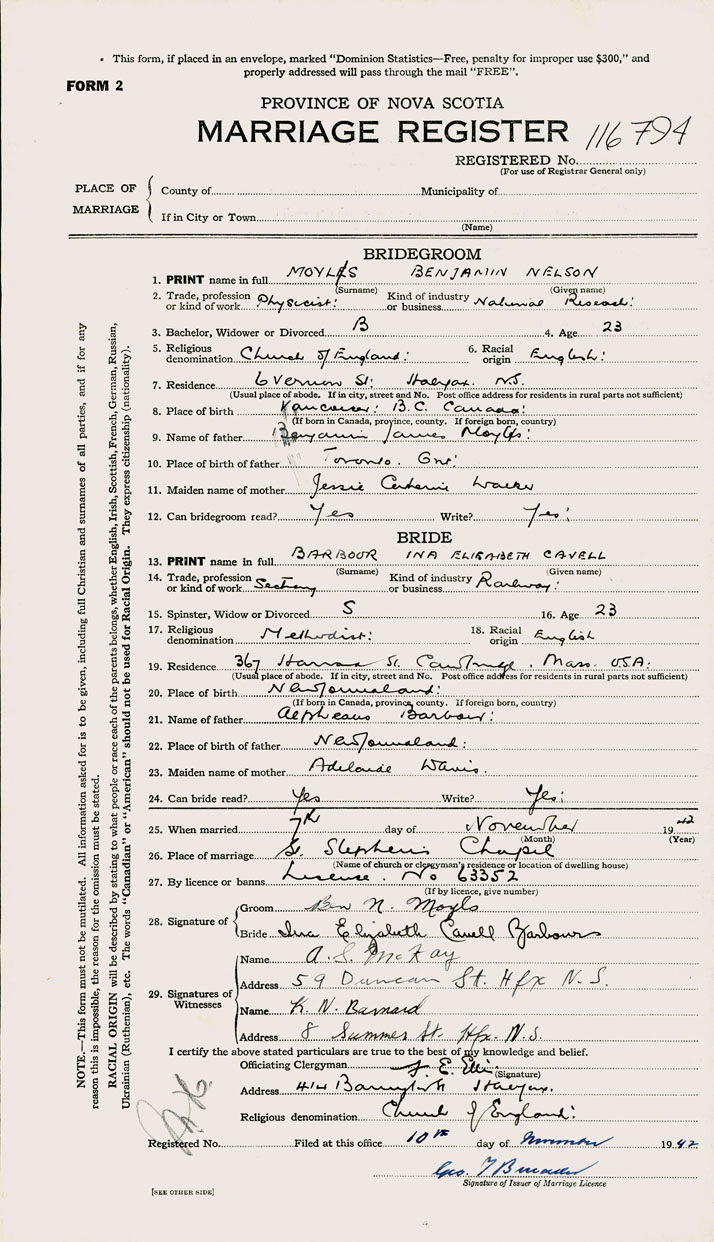 • This form, if placed in an envelope, marked "Dominion Statistics—Free, penalty for improper use $300," and
properly addressed will pass through the mail "FREE".
FORM 2
PROVINCE OF NOVA SCOTIA
MARRIAGE REGISTER 116794
REGISTERED No.
(For use of Registrar General only)
PLACE OF MARRIAGE
County of Municipality of
If in City or Town
(Name)
BRIDEGROOM
1. PRINT name in full MOYLS BENJAMIN NELSON
(Surname) (Given name)
2. Trade, profession or kind of work Physicist: Kind of industry or business National Research:
3. Bachelor, Widower or Divorced B 4. Age 23
5. Religious denomination Church of England: 6. Racial origin English:
7. Residence 6 Vernon St: Halifax. N.S.
(Usual place of abode. If in city, street and No. Post office address for residents in rural parts not sufficient)
8. Place of birth Vancouver: B.C. Canada:
(If born in Canada, province, county. If foreign born, country)
9. Name of father Benjamin James Moyls:
10. Place of birth of father Toronto. Ont:
11. Maiden name of mother Jessie Catherine Walker
12. Can bridegroom read? Yes Write? Yes:
BRIDE
13. PRINT name in full BARBOUR INA ELISABETH CAVELL
(Surname) (Given name)
14. Trade, profession or kind of work Kind of industry or business Railway:
15. Spinster, Widow or Divorced S 16. Age 23
17. Religious denomination Methodist: 18. Racial origin English
19. Residence 367 St. Cambridge, Mass. USA:
(Usual place of abode. If in city, street and No. Post office address for residents in rural parts not sufficient)
20. Place of birth Newfoundland:
(If born in Canada, province, county. If foreign born, country)
21. Name of father Alpheaus Barbour:
22. Place of birth of father Newfoundland:
23. Maiden name of mother Adelaide
24. Can bride read? Yes Write? Yes:
25. When married 7th day of November 1942
(Month) (Year)
26. Place of marriage St. Stephen's Chapel
(Name of church or clergyman's residence or location of dwelling house)
27. By licence or banns License. No 63352
(If by licence, give number)
28. Signature of
Groom Ben N. Moyls
Bride Ina Elizabeth Cavell Barbour
29. Signatures of Witnesses
Name A. S. McKay
Address 59 Duncan St. Hfx N.S.
Name K. N. Barnard
Address 8 Summer St. Hfx. N.S.
I certify the above stated particulars are true to the best of my knowledge and belief.
Officiating Clergyman
(Signature)
Address 414 Barrington St Halifax.
Religious denomination Church of England:
Registered No. Filed at this office 10th day of November 1942
Geo.
Signature of Issuer of Marriage Licence
[SEE OTHER SIDE]
NOTE.—This form must not be mutilated. All information asked for is to be given, including full Christian and surnames of all parties, and if for any
reason this is impossible, the reason for the omission must be stated.
RACIAL ORIGIN will be described by stating to what people or race each of the parents belongs, whether English, Irish, Scottish, French, German, Russian,
Ukrainian (Ruthenian), etc. The words "Canadian" or "American" should not be used for Racial Origin. They express citizenship (nationality).